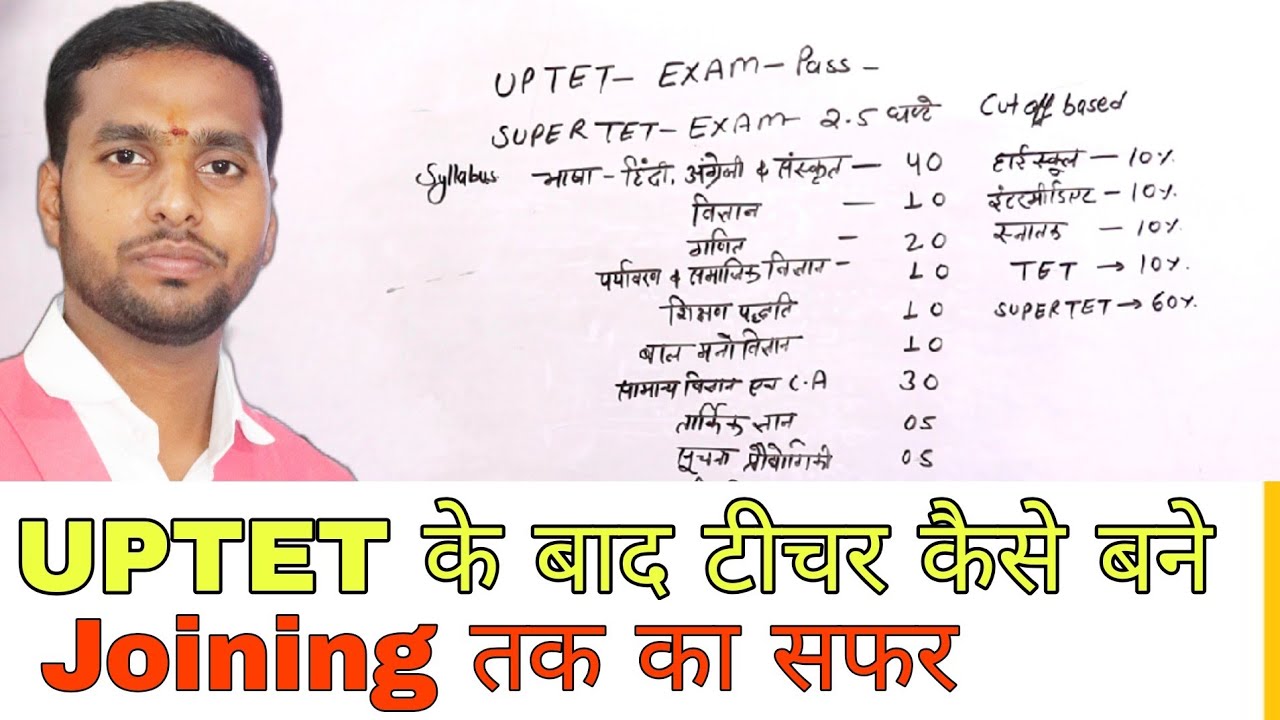 UPTET- EXAM - Pass -
SUPERTET- EXAM- 2.5 घण्टे Cut off based
Syllabus भाषा - हिंदी, अंग्रेजी & संस्कृत - 40 हाईस्कूल - 10%
विज्ञान - 10 इंटरमीडिएट - 10%
गणित - 20 स्नातक - 10%
पर्यावरण & समाजिक विज्ञान - 10 TET → 10%
शिक्षण पद्धति 10 SUPERTET → 60%
बाल मनोविज्ञान 10
सामान्य विज्ञान एवं C.A 30
तार्किक ज्ञान 05
सूचना प्रौद्योगिकी 05
UPTET के बाद टीचर कैसे बने
Joining तक का सफर